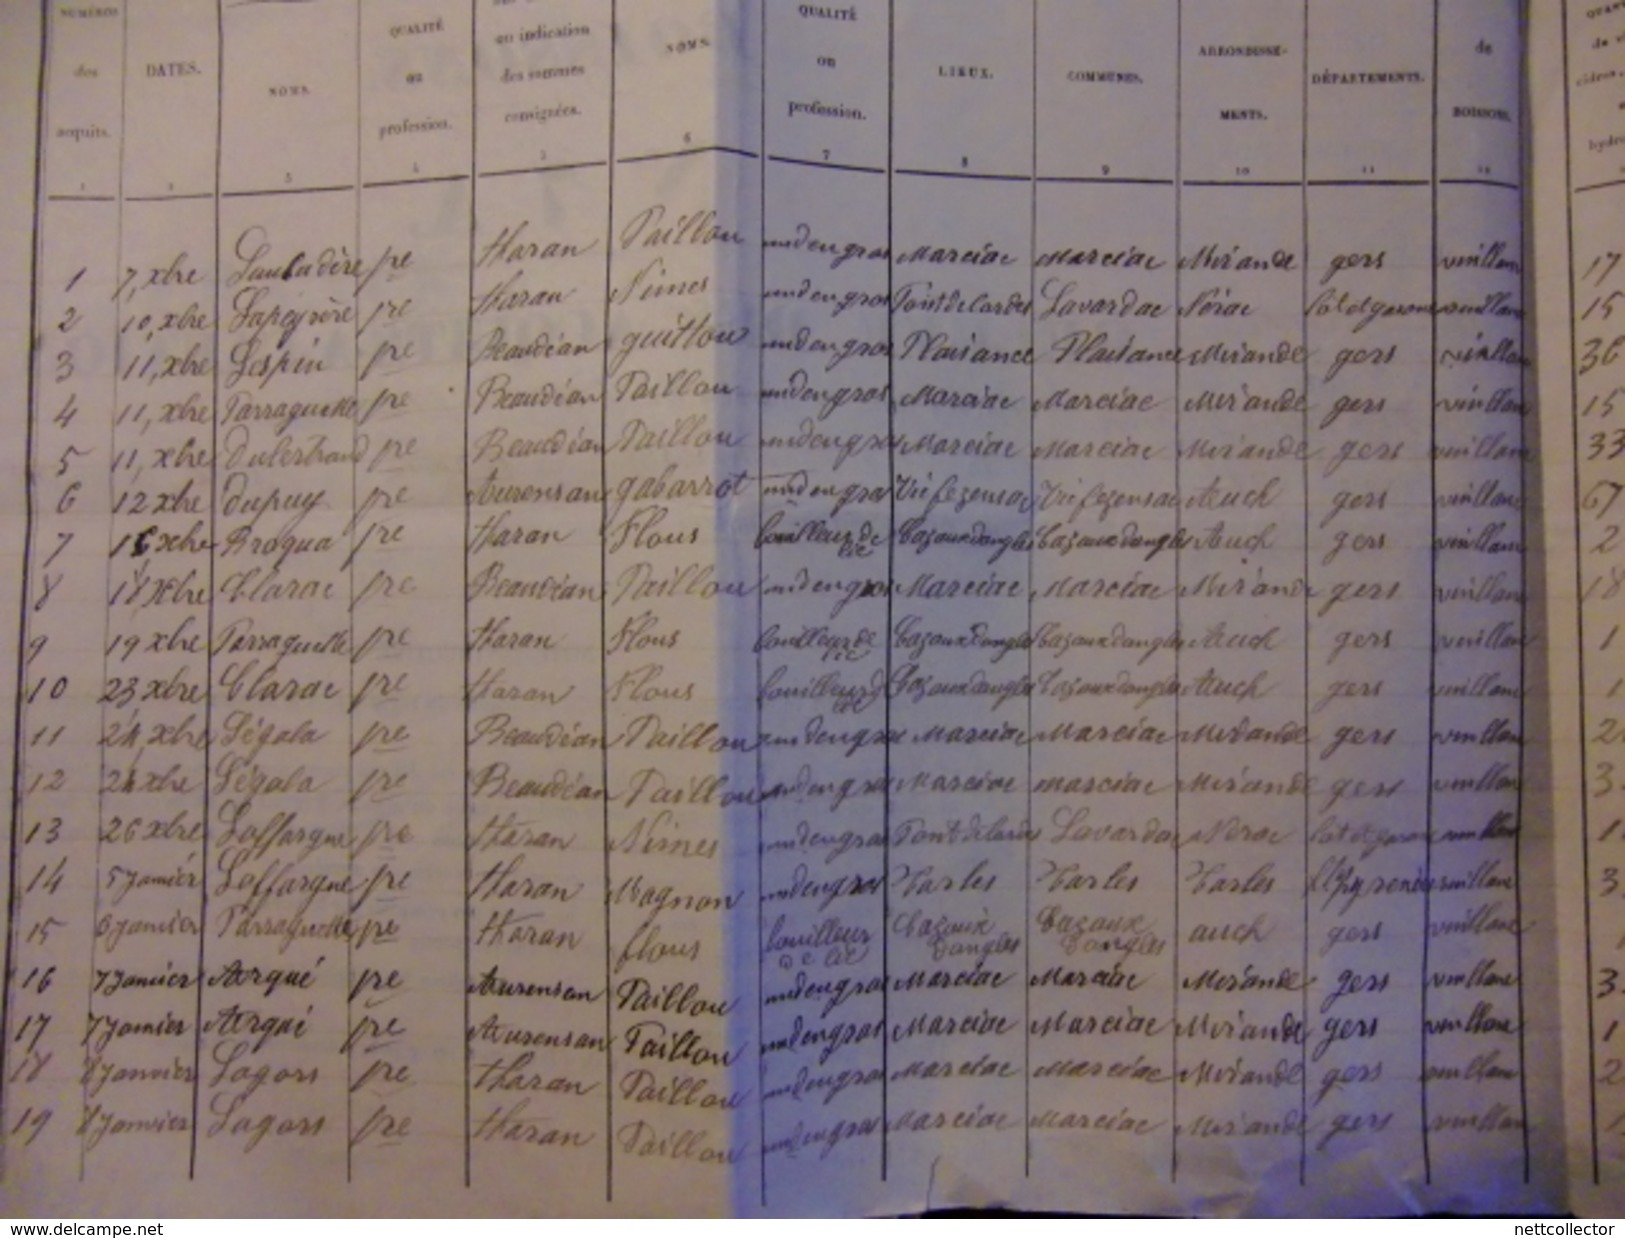 NUMÉROS des acquits. DATES. NOMS. QUALITÉ ou profession. ou indication des sommes consignées. NOMS. QUALITÉ ou profession. LIEUX. COMMUNES. ARRONDISSE- MENTS. DÉPARTEMENTS. de BOISSONS.
1 2 3 4 5 6 7 8 9 10 11 12
1 7, xbre Laubadère pre Haran Taillou md en gros Marciac Marciac Mirande gers vin blanc 17
2 10, xbre Lapeyrère pre Haran Nismes md en gros Pont de bordes Lavardac Nérac lot et garonne vin blanc 15
3 11, xbre Lespin pre Beaudéan guillou md en gros Plaisance Plaisance Mirande gers vin blanc 36
4 11, xbre Tarraguette pre Beaudéan Taillou md en gros Marciac Marciac Mirande gers vin blanc 15
5 11, xbre Dubertrand pre Beaudéan Taillou md en gros Marciac Marciac Mirande gers vin blanc 33
6 12 xbre Dupuy pre Aurensan gabarrot md en gros Vic fezensac Vic fezensac Auch gers vin blanc 67
7 xbre Broqua pre Haran Flous bouilleur de Cazaux d'angles Cazaux d'angles Auch gers vin blanc 2
8 18 xbre Clarac pre Beaudéan Taillou md en gros Marciac Marciac Mirande gers vin blanc 18
9 19 xbre Tarraguette pre Haran Flous bouilleur de Cazaux d'angles Cazaux d'angles Auch gers vin blanc 1
10 23 xbre Clarac pre Haran Flous bouilleur d Cazaux d'angles Cazaux d'angles Auch gers vin blanc 1
11 24 xbre Ségala pre Beaudéan Taillou md en gros Marciac Marciac Mirande gers vin blanc 2
12 24 xbre Ségala pre Beaudéan Taillou md en gros Marciac Marciac Mirande gers vin blanc 3
13 26 xbre Laffargue pre Haran Nismes md en gros Pont de bordes Lavardac Nérac lot et garonne vin blanc 1
14 5 Janvier Laffargue pre Haran Magnon md en gros Tarbes Tarbes Tarbes Htes pyrenées vin blanc 3
15 6 Janvier Tarraguette pre Haran flous bouilleur de Cazaux d'angles Cazaux d'angles auch gers vin blanc
16 7 Janvier Arqué pre Aurensan Taillou md en gros Marciac Marciac Mirande gers vin blanc 3
17 7 Janvier Arqué pre Aurensan Taillou md en gros Marciac Marciac Mirande gers vin blanc 1
18 8 Janvier Lagors pre Haran Taillou md en gros Marciac Marciac Mirande gers vin blanc 2
19 8 Janvier Lagors pre Haran Taillou md en gros Marciac Marciac Mirande gers vin blanc
www.delcampe.net nettcollector